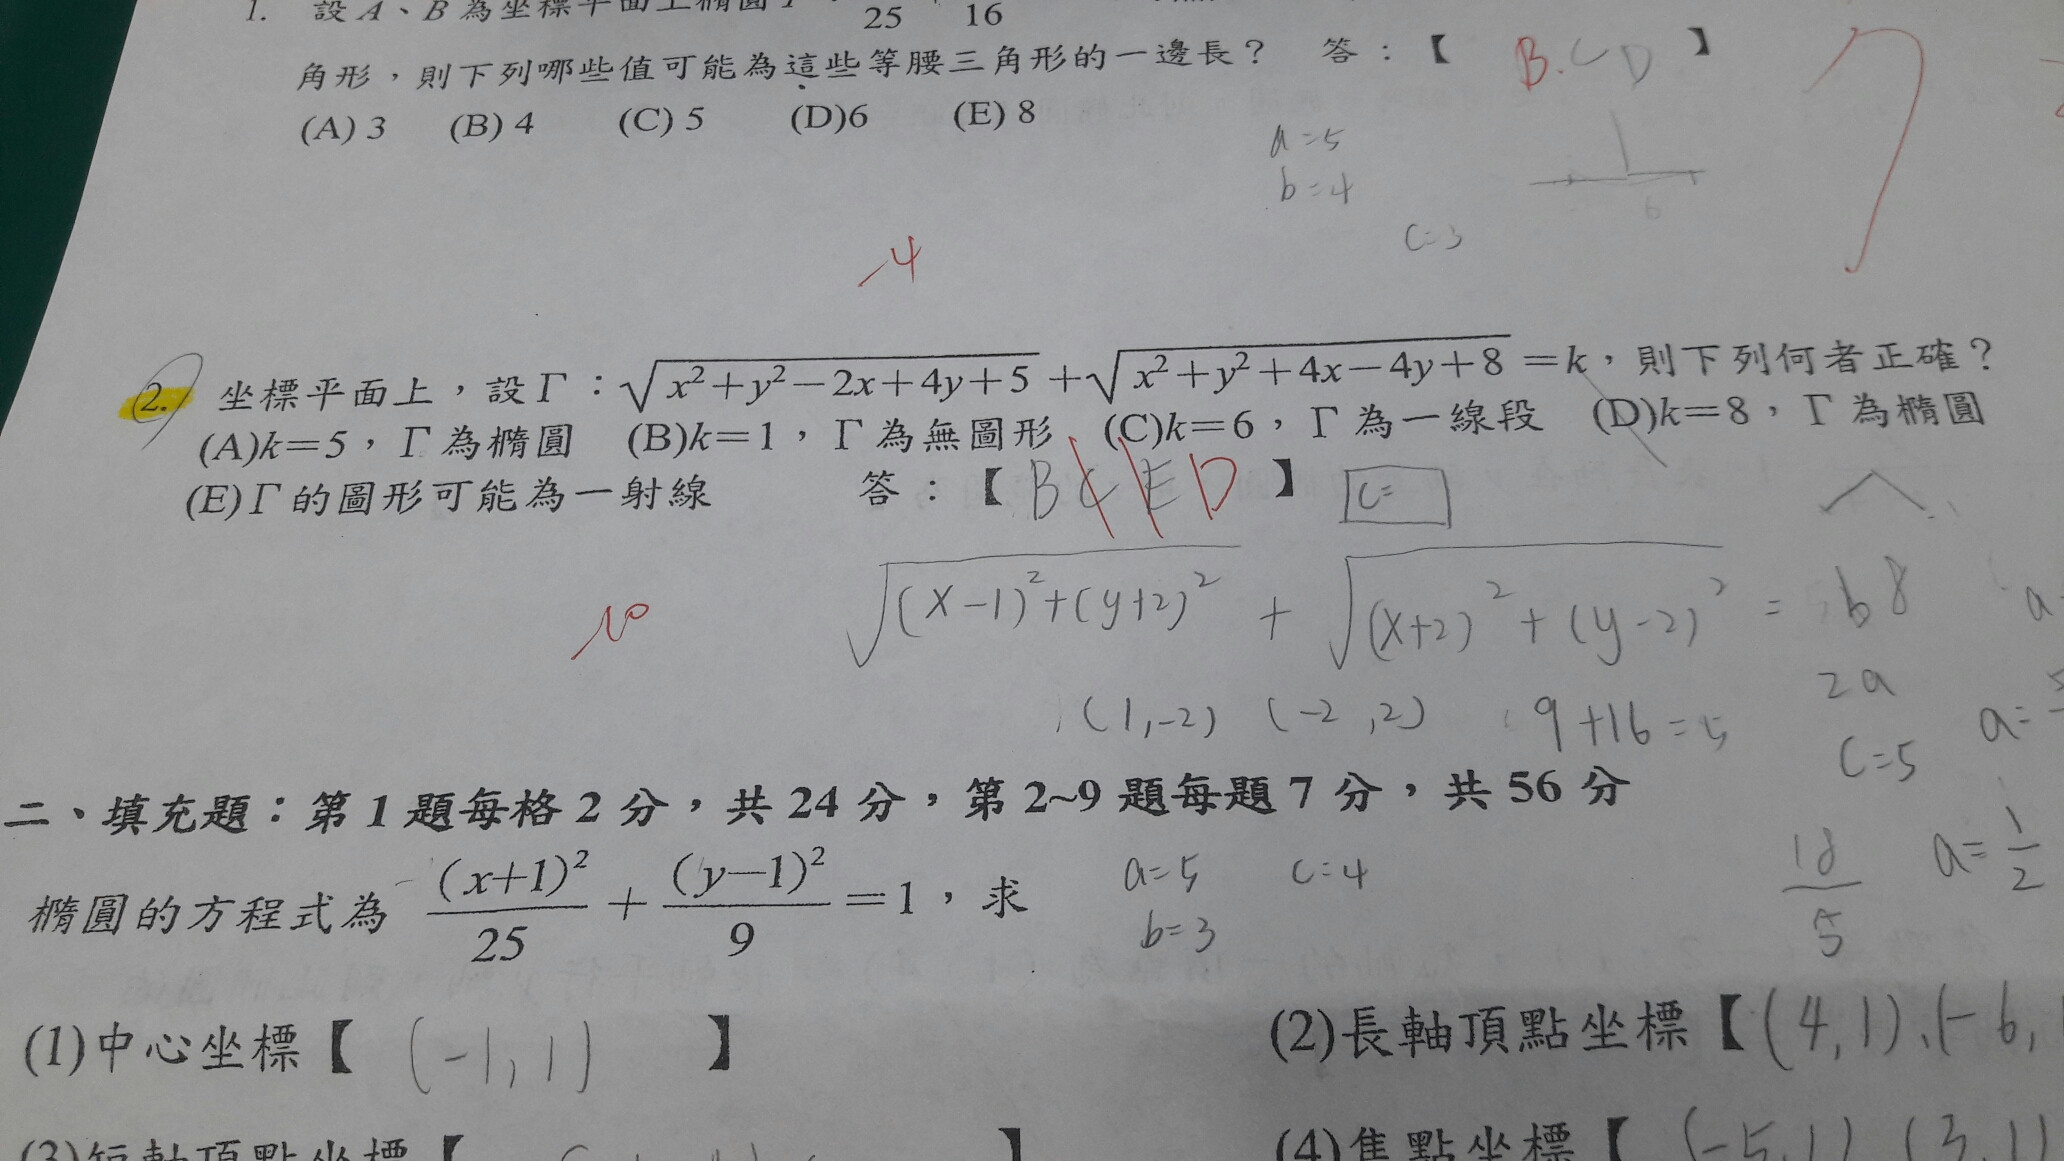 1. 設A、B為坐標平面上橢圓Γ： 25 16
角形，則下列哪些值可能為這些等腰三角形的一邊長？ 答：【 B.CD 】
(A) 3 (B) 4 (C) 5 (D)6 (E) 8
a=5
b=4
c=3
-4
2. 坐標平面上，設Γ：√(x²+y²−2x+4y+5) +√(x²+y²+4x−4y+8) =k，則下列何者正確？
(A)k=5，Γ為橢圓 (B)k=1，Γ為無圖形 (C)k=6，Γ為一線段 (D)k=8，Γ為橢圓
(E)Γ的圖形可能為一射線 答：【 BCED 】 c=
√((x-1)²+(y+2)²) + √((x+2)²+(y-2)²) = 6 8
-10
2a
(1,-2) (-2,2) 9+16=5 a=
c=5
二、填充題：第1題每格2分，共24分，第2~9題每題7分，共56分
橢圓的方程式為 (x+1)²/25 + (y−1)²/9 =1，求
a=5 c=4
b=3
18/5
a=1/2
(1)中心坐標【 (-1,1) 】 (2)長軸頂點坐標【(4,1)、(-6,
(3)短軸頂點坐標【 】 (4)焦點坐標【 (-5,1) (3,1)